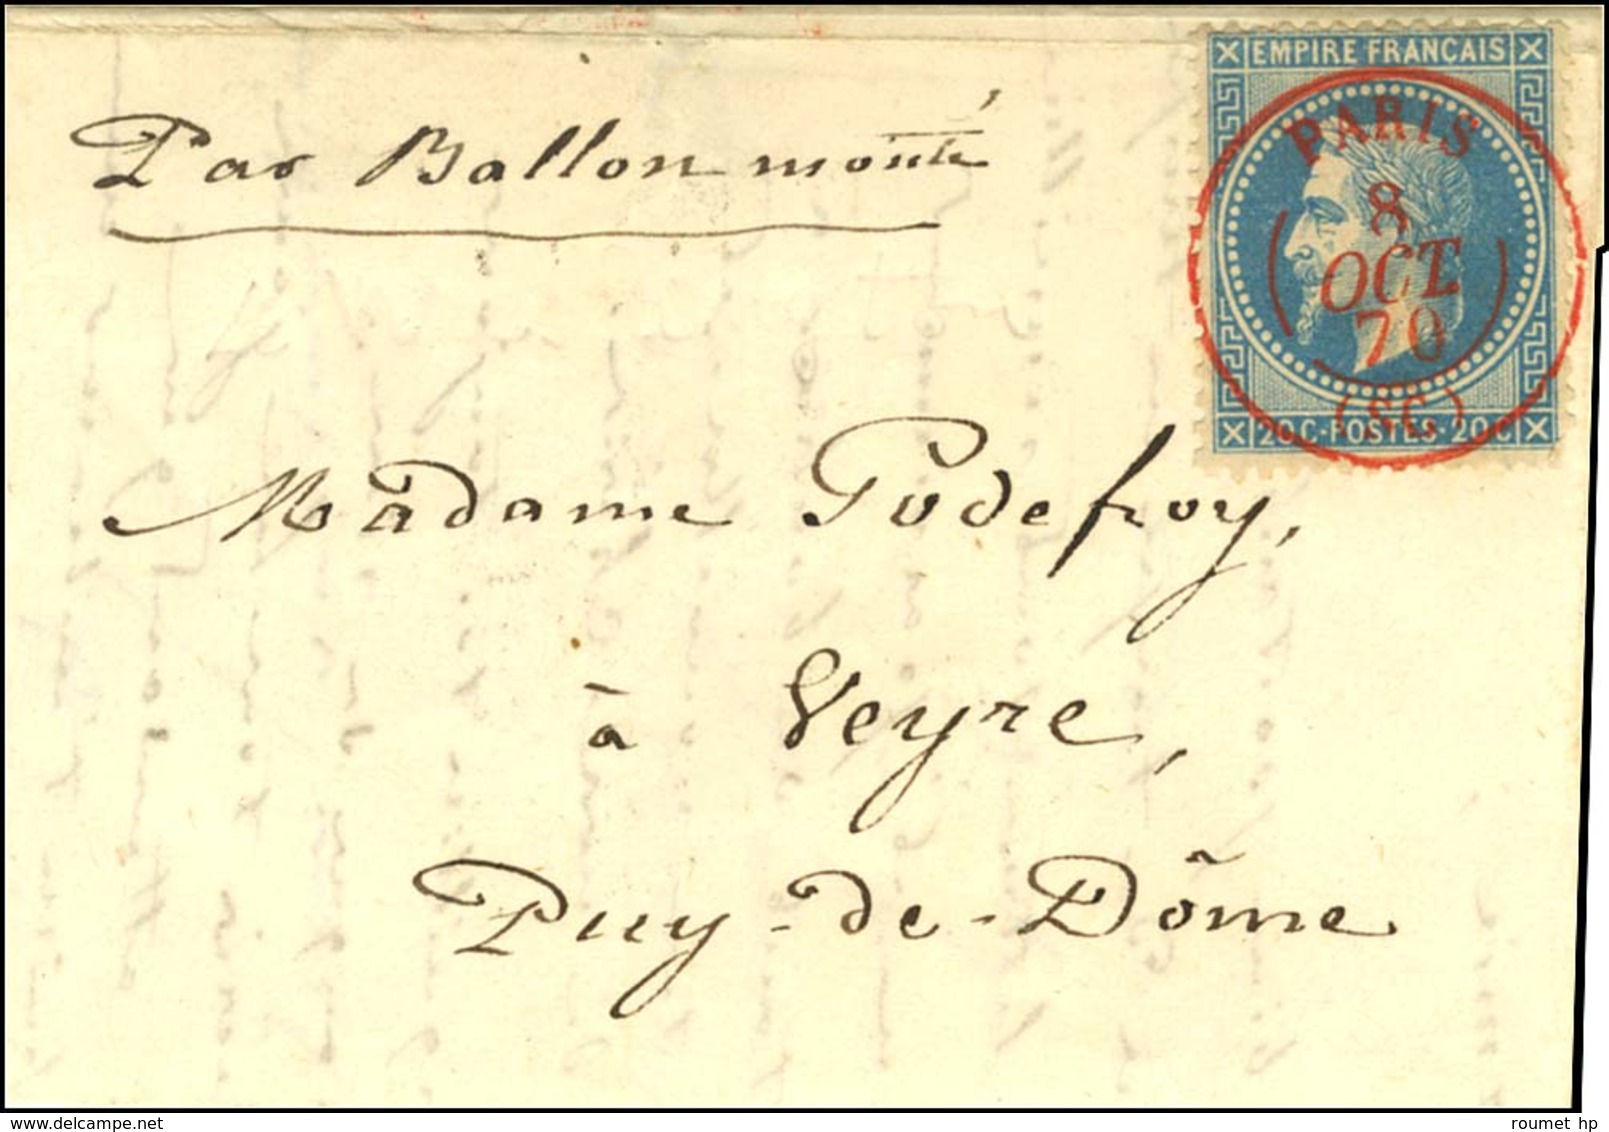 EMPIRE FRANÇAIS
PARIS
8
OCT.
70
(SC)
20 C·POSTES·20·C
Par Ballon monté
Madame Godefroy,
à Veyre,
Puy-de-Dôme
delcampe.net
roumet hp